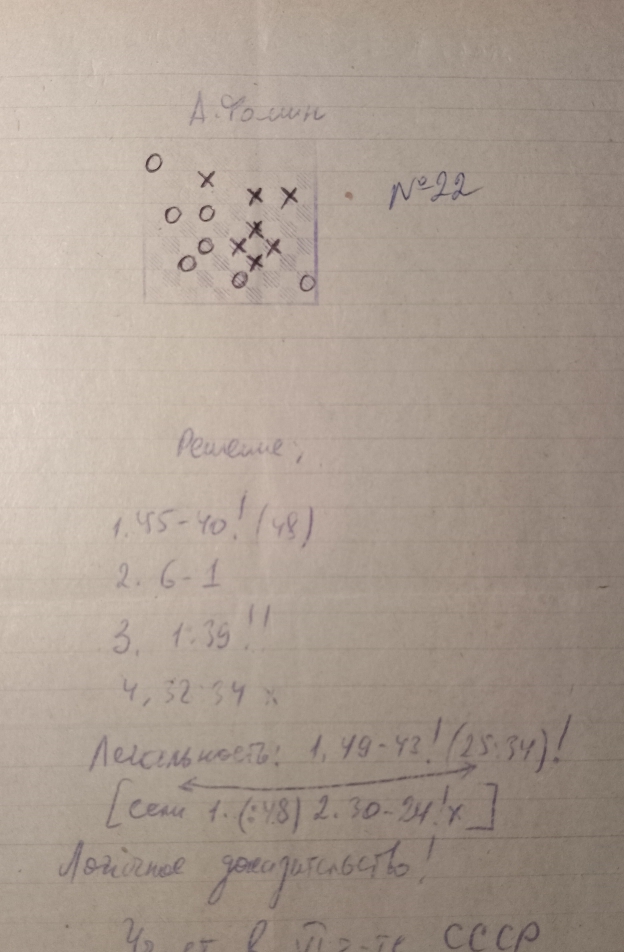 А. Фомин
№22
Решение:
1. 45-40! (49)
2. 6-1
3. 1:39!!
4, 32:34 x
Легальность: 1. 49-43! (25:34)!
[если 1. (:48) 2. 30-24! x]
Логичное доказательство!
в СССР